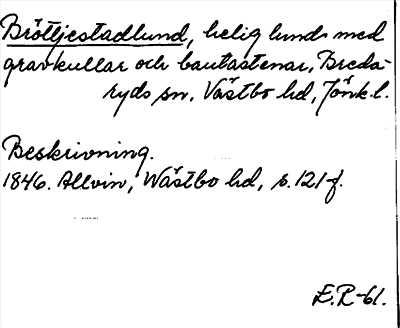 Bröttjestadlund, helig lund med
gravkullar och bautastenar, Breda-
ryds sn, Västbo hd, Jönk. l.
Beskrivning.
1846. Allvin, Wästbo hd, s. 121 f.
E.R-61.